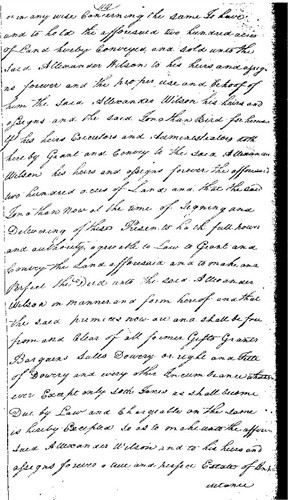 or in any wise Concerning the same To have
and to hold the afforesaid two hundred acres
of Land hereby Conveyed, and sold unto the
Said Allexander Wilson to his heirs and assig
ns forever and the proper use and behoof of
him the Said Allexander Wilson his heirs and
assigns and the said Jonathan Bird for himse
lf his heirs Executors and Administrators doth
hereby Grant and Convey to the said Allexander
Wilson his heirs and assigns forever the afforesaid
two hundred acres of Land and that the said
Jonathan Now at the time of Signing and
Delivering of these Presents hath full Power
and authority agreable to Law to Grant and
Convey the Land afforesaid and to make one
Perfect the Deed unto the said Allexander
Wilson in manner and form hereof and that
the said premices now are and shall be free
from and Clear of all former Gifts Grants
Bargains Salls Dowery or right and title
of Dowery and every other Incumbrance whats
ever Except only such Taxes as shall become
Due by Law and Chargeable on the same
is hereby Excepted so as to make unto the affore
Said Allexander Wilson and to his heirs and
assigns forever a true and perfect Estate of